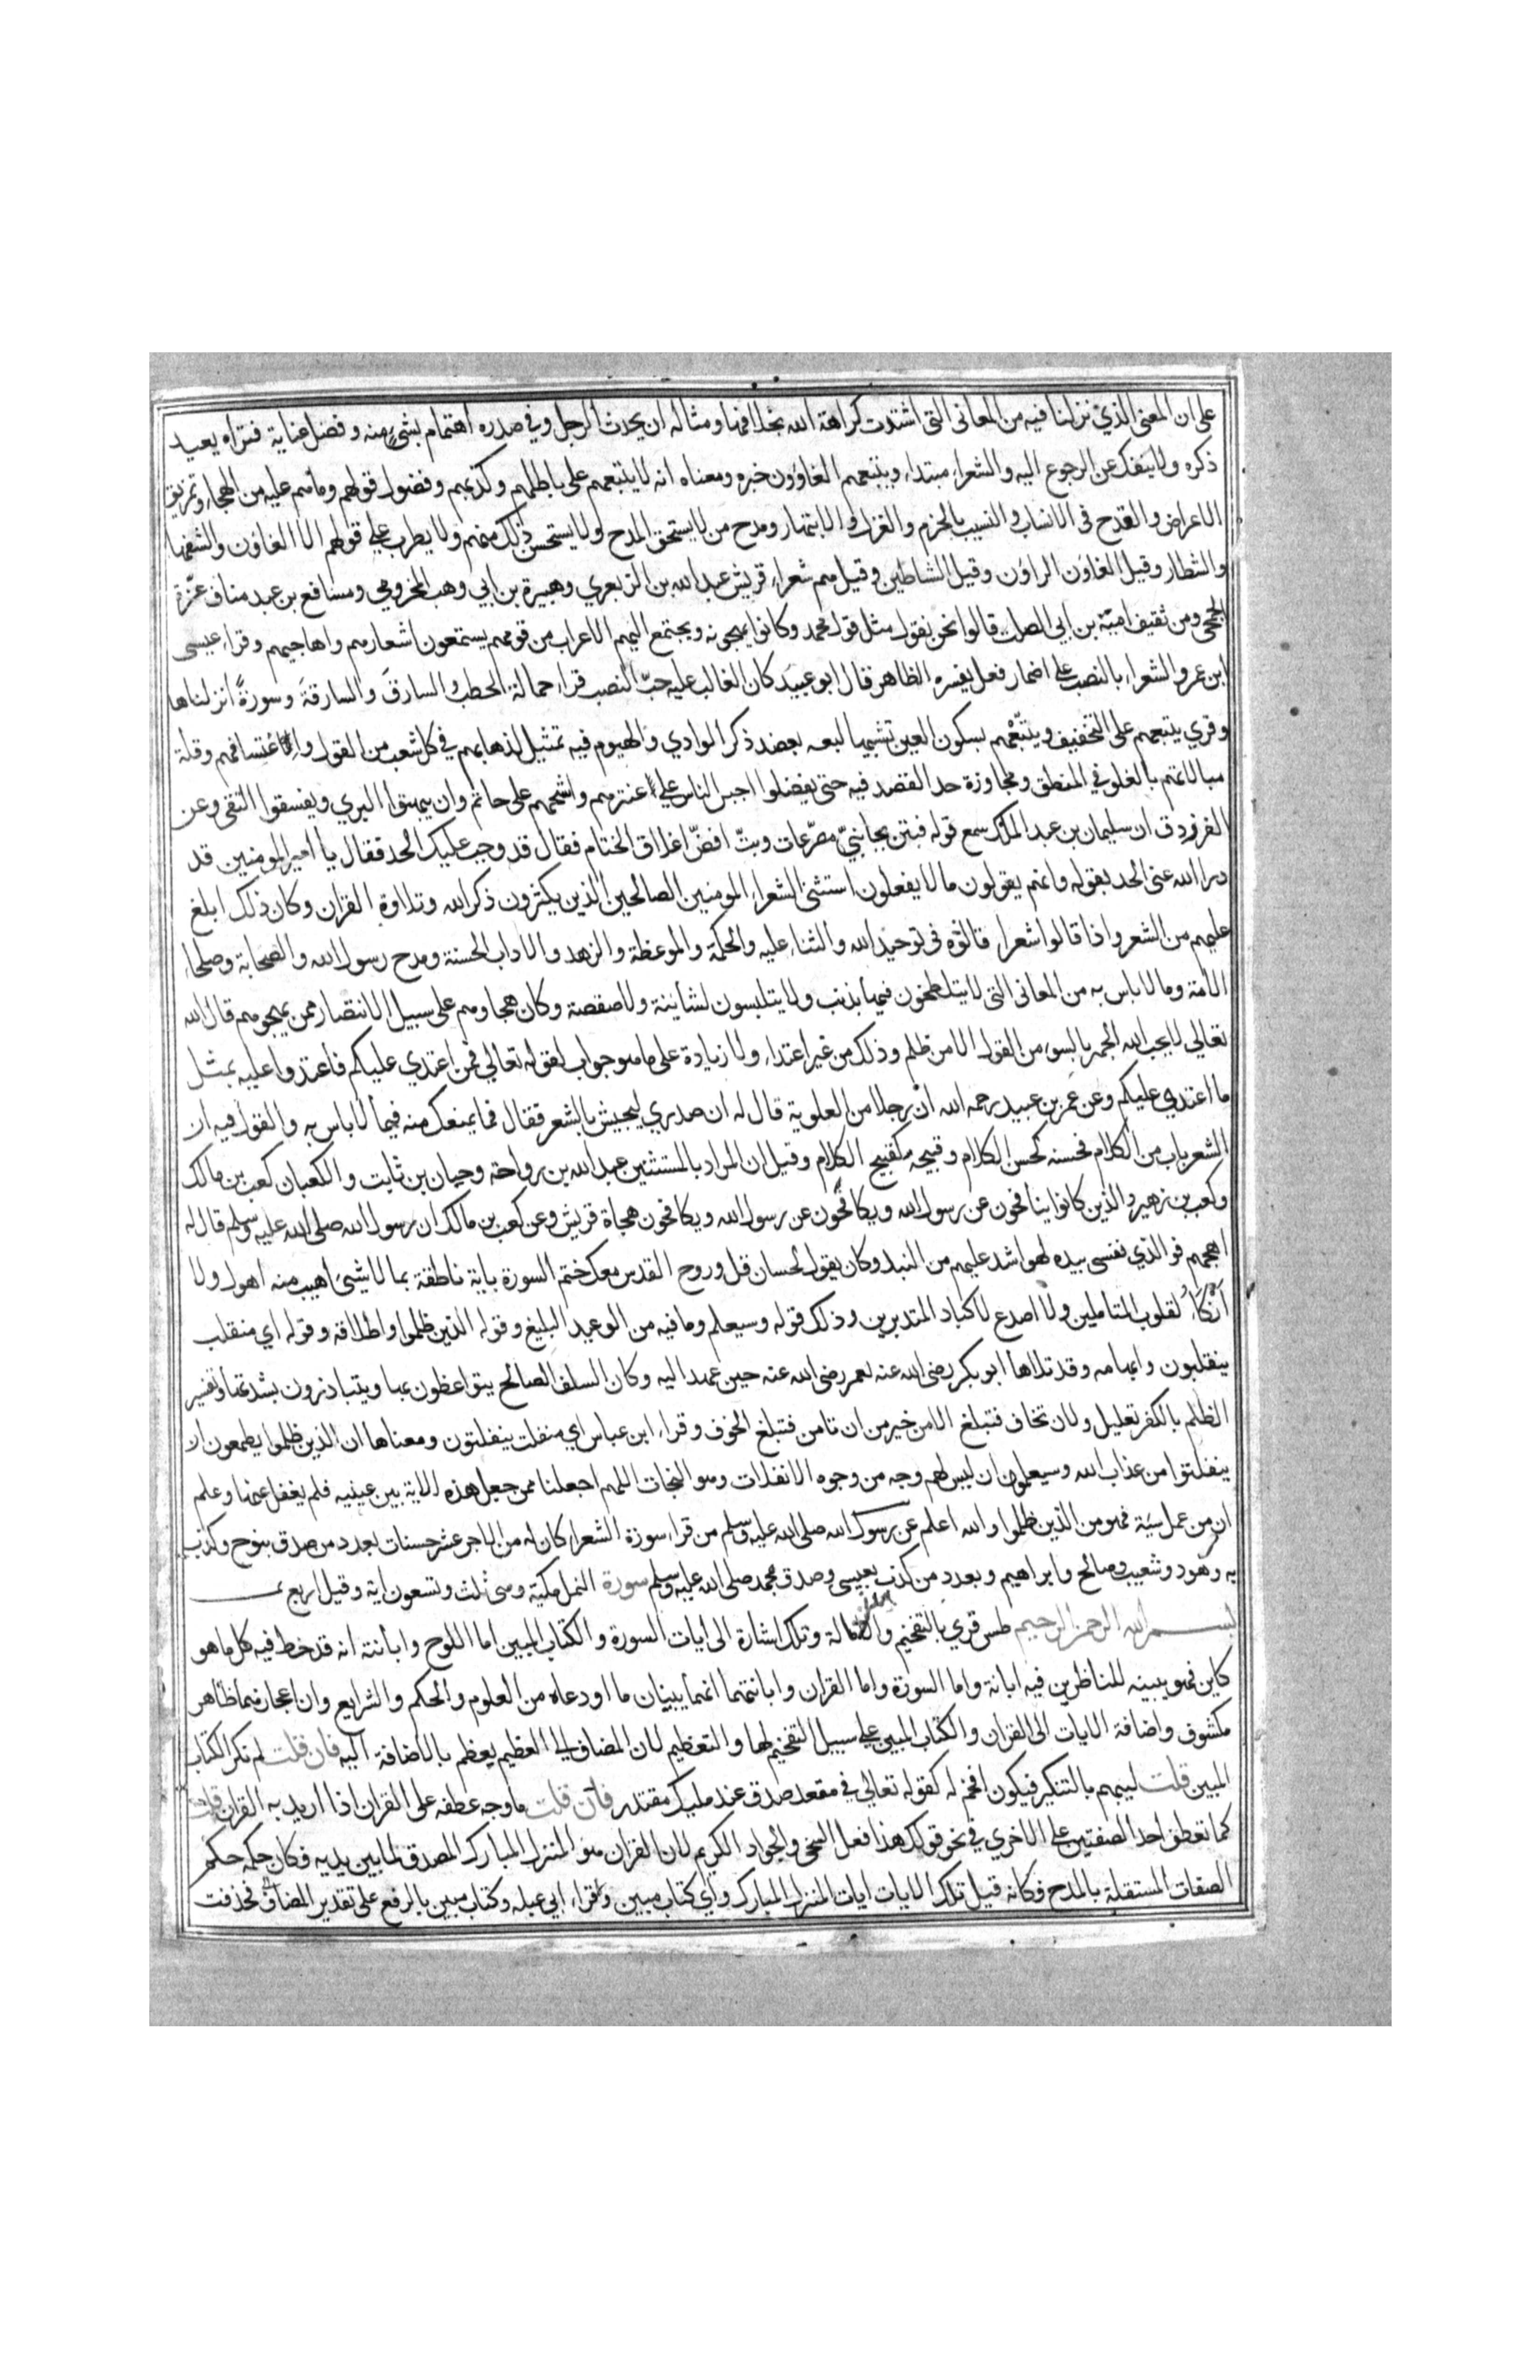 على ان المعنى الذي نزلنا فيه من المعاني التي اشتدت كراهة الله بخلافها ومثاله ان يحدث الرجل وفي صدره اهتمام بشيء منه وفضل عناية فتراه يعيد
ذكره ولا ينفك عن الرجوع اليه والشعراء مبتداء ويتبعهم الغاوون خبره ومعناه انه لا يتبعهم على باطلهم وكذبهم وفضول قولهم وما هم عليه من الهجاء وتمزيق
الاعراض والقدح في الانساب والنسيب بالحرم والغزل والابتهار ومدح من لا يستحق المدح ولا يستحسن ذلك منهم ولا يطرب على قولهم الا الغاوون والسفهاء
والشطار وقيل الغاون الراوون وقيل الشياطين وقيل هم شعراء قريش عبد الله بن الزبعري وهبيرة بن ابي وهب المخزومي ومسافع بن عبد مناف عزة
الجمحي ومن ثقيف امية بن ابي الصلت قالوا نحن نقول مثل قول محمد وكانوا يهجونه ويجتمع اليهم الاعراب من قومهم يستمعون اشعارهم واهاجيهم وقراء عيسى
ابن عمر والشعراء بالنصب على اضمار فعل يفسره الظاهر قال ابو عبيد كان الغالب عليه حبّ النصب قراء حمالة الحطب والسارق والسارقة وسورة انزلناها
وقري يتبعهم على التخفيف ويتبعهم بسكون العين تشبيها لبعه بعضد ذكر الوادي والهيوم فيه تمثيل لذهابهم في كل شعب من القول واعتسافهم وقلة
مبالاتهم بالغلو في المنطق ومجاوزة حد القصد فيه حتى يفضلوا اجبن الناس على عنترهم واشحهم على حاتم وان يبهتوا البري ويفسقوا التقى وعن
الفرزدق ان سليمان بن عبد الملك سمع قوله فبتن بجانبيّ مصرّعات وبتّ افضّ اغلاق الختام فقال قد وجب عليك الحد فقال يا امير المومنين قد
درا الله عني الحد بقوله وانهم يقولون ما لا يفعلون استثنى الشعراء المومنين الصالحين الذين يكثرون ذكر الله وتلاوة القران وكان ذلك ابلغ
عليهم من الشعر واذا قالوا شعرا قالوه في توحيد الله والثناء عليه والحكمة والموعظة والزهد والاداب الحسنة ومدح رسول الله والصحابة وصلحاء
الامة وما لا باس به من المعاني التي لا يتلطخون فيها بذنب ولا يتلبسون لشاينة ولا منقصة وكان هجاوهم على سبيل الانتصار ممن يهجوهم قال الله
تعالى لا يحب الله الجهر بالسوء من القول الا من ظلم وذلك من غير اعتداء ولا زيادة على ما هو جواب لقوله تعالى فمن اعتدي عليكم فاعتدوا عليه بمثل
ما اعتدي عليكم وعن عمر بن عبيد رحمه الله ان رجلا من العلوية قال له ان صدري ليجيش بالشعر فقال فما يمنعك منه فيما لا باس به والقول فيه ان
الشعر باب من الكلام فحسنه كحسن الكلام وقبيحه كقبيح الكلام وقيل ان المراد بالمستثنين عبد الله بن رواحة وحسان بن ثابت والكعبان كعب بن مالك
وكعب بن زهير والذين كانوا ينافحون عن رسول الله ويكافحون عن رسول الله ويكافحون هجاة قريش وعن كعب بن مالك ان رسول الله صلى الله عليه وسلم قال له
اهجهم فوالذي نفسي بيده لهو اشد عليهم من النبل وكان يقول لحسان قل وروح القدس معك ختم السورة باية ناطقة بما لا شيئ اهيب منه اهول ولا
انكاء لقلوب المتاملين ولا اصدع لاكباد المتدبرين وذلك قوله وسيعلم وما فيه من الوعيد البليغ وقوله الذين ظلموا واطلاقه وقوله اي منقلب
ينقلبون وابهامه وقد تلاها ابو بكر رضى الله عنه لعمر رضى الله عنه حين عهد اليه وكان السلف الصالح يتواعظون بها ويتناذرون بشدتها وتفسير
الظلم بالكفر تعليل ولان تخاف فتبلغ الامن خير من ان تامن فتبلغ الخوف وقراء ابن عباس اي منفلت ينفلتون ومعناها ان الذين ظلموا يطمعون ان
ينفلتوا من عذاب الله وسيعلمون ان ليس لهم وجه من وجوه الانفلات وهو النجات اللهم اجعلنا ممن جعل هذه الاية بين عينيه فلم يغفل عنها وعلم
ان من عمل سيّة فهو من الذين ظلموا والله اعلم عن رسول الله صلى الله عليه وسلم من قراء سورة الشعراء كان له من الاجر عشر حسنات بعدد من صدق بنوح وكذب
به وهود وشعيب وصالح وابراهيم وبعدد من كذب بعيسى وصدق محمد صلى الله عليه وسلم سورة النمل مكية وهي ثلث وتسعون اية وقيل اربع
بسم الله الرحمن الرحيم طس قري بالتفخيم والامالة وتلك اشارة الى ايات السورة والكتاب المبين اما اللوح وابانته انه قد خط فيه كل ما هو
كاين فهو يبينه للناظرين فيه ابانة واما السورة واما القران وابانتهما انهما يبينان ما اودعاه من العلوم والحكم والشرايع وان اعجازهما ظاهر
مكشوف واضافة الايات الى القران والكتاب المبين على سبيل التفخيم لها والتعظيم لان المضاف الى العظيم يعظم بالاضافة اليه فان قلت لم نكر الكتاب
المبين قلت ليبهم بالتنكير فيكون افخم له كقوله تعالى في مقعد صدق عند مليك مقتدر فان قلت ما وجه عطفه على القران اذا اريد به القران قلت
كما تعطف احد الصفتين على الاخري في نحو قولك هذا فعل السخي والجواد الكريم لان القران هو المنزل المبارك المصدق لما بين يديه فكان حكمه حكم
الصفات المستقلة بالمدح فكانه قيل تلك الايات ايات المنزل المبارك واي كتاب مبين وقراء ابي عبله وكتاب مبين بالرفع على تقدير المضاف فحذفت